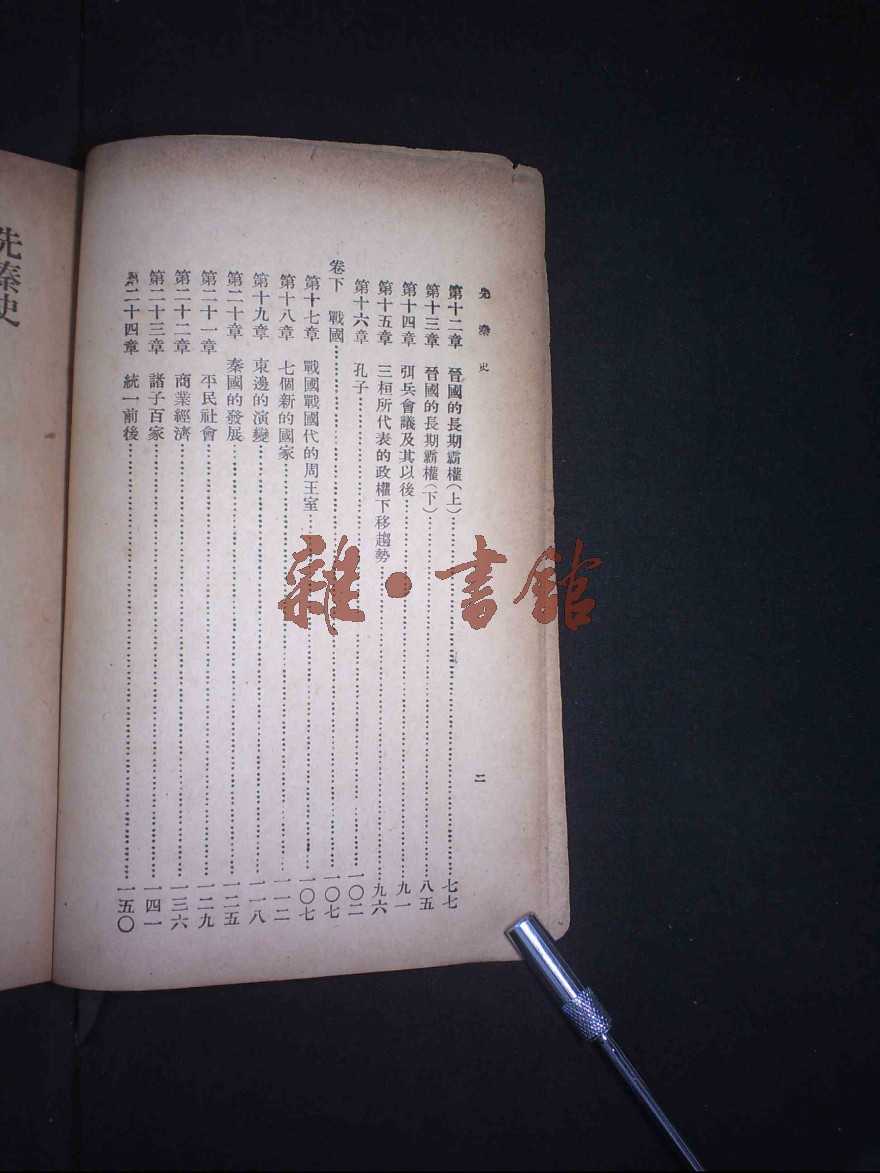 先秦史
第十二章 晉國的長期霸權(上)……七七
第十三章 晉國的長期霸權(下)……八五
第十四章 弭兵會議及其以後……九一
第十五章 三桓所代表的政權下移趨勢……九六
第十六章 孔子……一〇二
卷下 戰國……一〇七
第十七章 戰國戰國代的周王室……一〇七
第十八章 七個新的國家……一一二
第十九章 東邊的演變……一一八
第二十章 秦國的發展……一二五
第二十一章 平民社會……一二九
第二十二章 商業經濟……一三六
第二十三章 諸子百家……一四一
第二十四章 統一前後……一五〇
二
先秦史
雜·書館